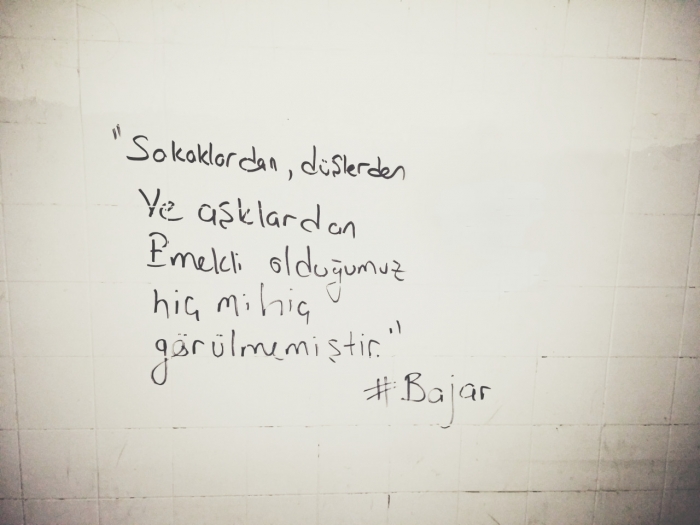 "Sokaklardan, düşlerden
Ve aşklardan
Emekli olduğumuz
hiç mi hiç
görülmemiştir."
#Bajar